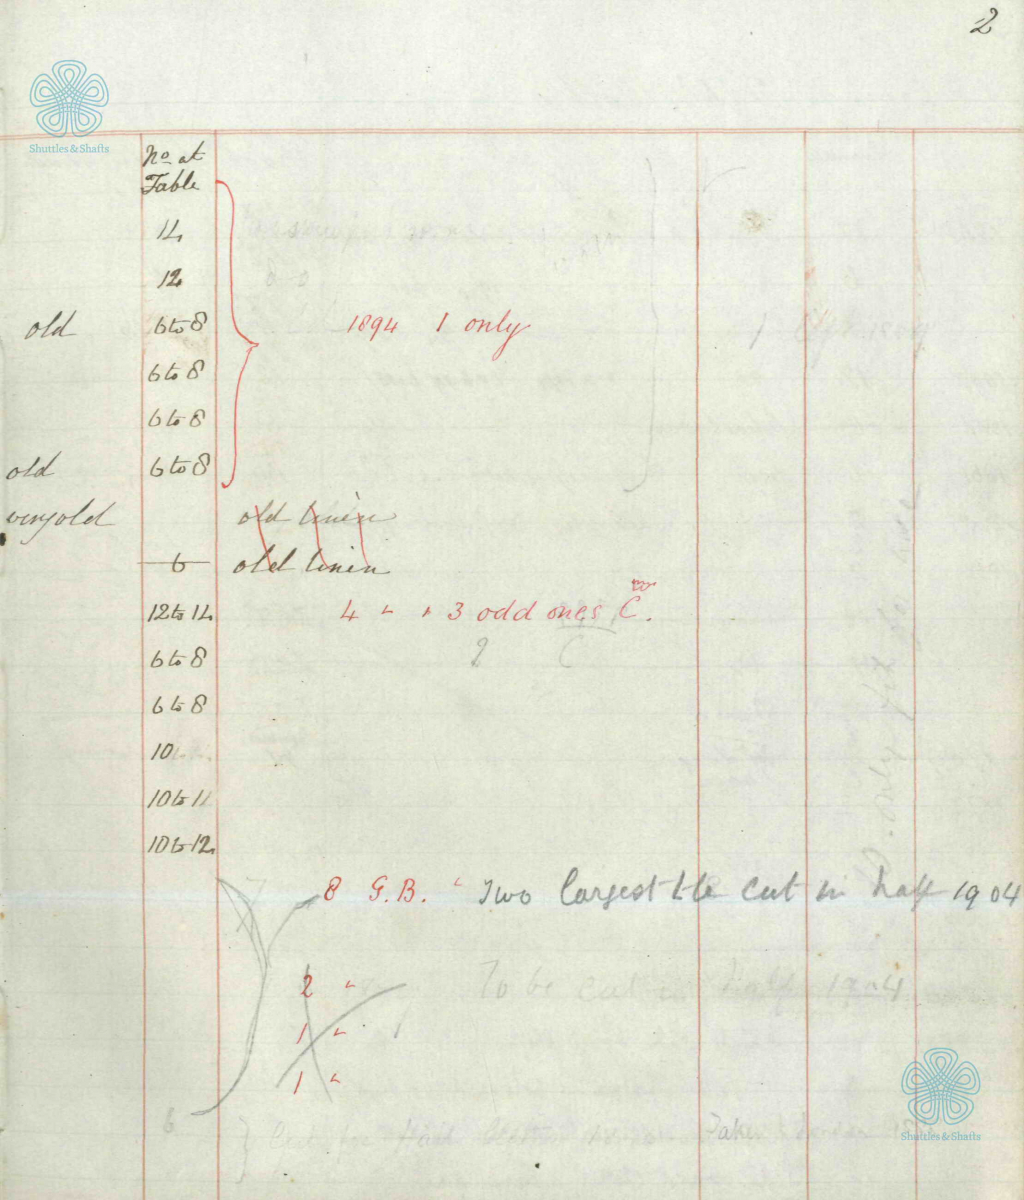 2
Shuttles & Shafts
No. at
Table
12
old 6 to 8 1894 1 only
6 to 8
6 to 8
old 6 to 8
very old old linen
6 old linen
12 to 14 4 " + 3 odd ones C.
6 to 8 2 C
6 to 8
10
10 to 11
10 to 12
8 G.B. " Two largest to be cut in half 1904
2 " To be cut in half 1904
1 "
1 "
6
Shuttles & Shafts